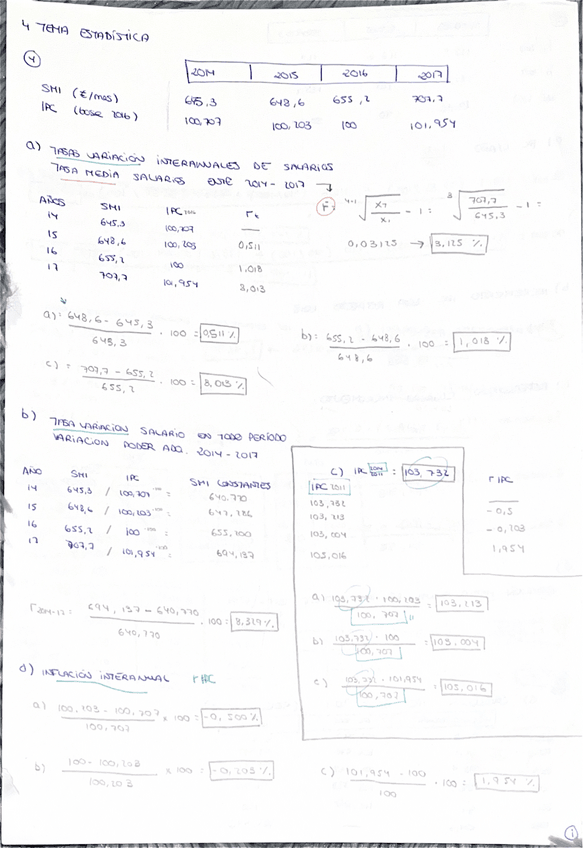 4 TEMA ESTADÍSTICA
4
2014 2015 2016 2017
SMI (€/mes) 645,3 648,6 655,2 707,7
IPC (base 2016) 100,707 100,203 100 101,954
a) TASAS VARIACIÓN INTERANUALES DE SALARIOS
TASA MEDIA SALARIOS ENTRE 2014-2017
AÑOS SMI IPC
14 645,3 100,707 —
15 648,6 100,203 0,511
16 655,2 100 1,018
17 707,7 101,954 8,013
707,7 / 645,3 - 1 =
0,03125 → 3,125 %
a) = 648,6 - 645,3 / 645,3 · 100 = 0,511 %
b) = 655,2 - 648,6 / 648,6 · 100 = 1,018 %
c) = 707,7 - 655,2 / 655,2 · 100 = 8,013 %
b) TASA VARIACIÓN SALARIO EN TODO PERÍODO
VARIACIÓN PODER ADQ. 2014-2017
AÑO SMI IPC SMI CONSTANTES
14 645,3 / 100,707 = 640,770
15 648,6 / 100,203 = 647,286
16 655,2 / 100 = 655,200
17 707,7 / 101,954 = 694,137
694,137 - 640,770 / 640,770 · 100 = 8,329 %
c) IPC = 103,732
IPC 2011 r IPC
103,732 —
103,213 -0,5
103,004 -0,203
105,016 1,954
a) 103,732 · 100,203 / 100,707 = 103,213
b) 103,732 · 100 / 100,707 = 103,004
c) 103,732 · 101,954 / 100,707 = 105,016
d) INFLACIÓN INTERANUAL r IPC
a) 100,203 - 100,707 / 100,707 × 100 = -0,500 %
b) 100 - 100,203 / 100,203 × 100 = -0,203 %
c) 101,954 - 100 / 100 · 100 = 1,954 %
1